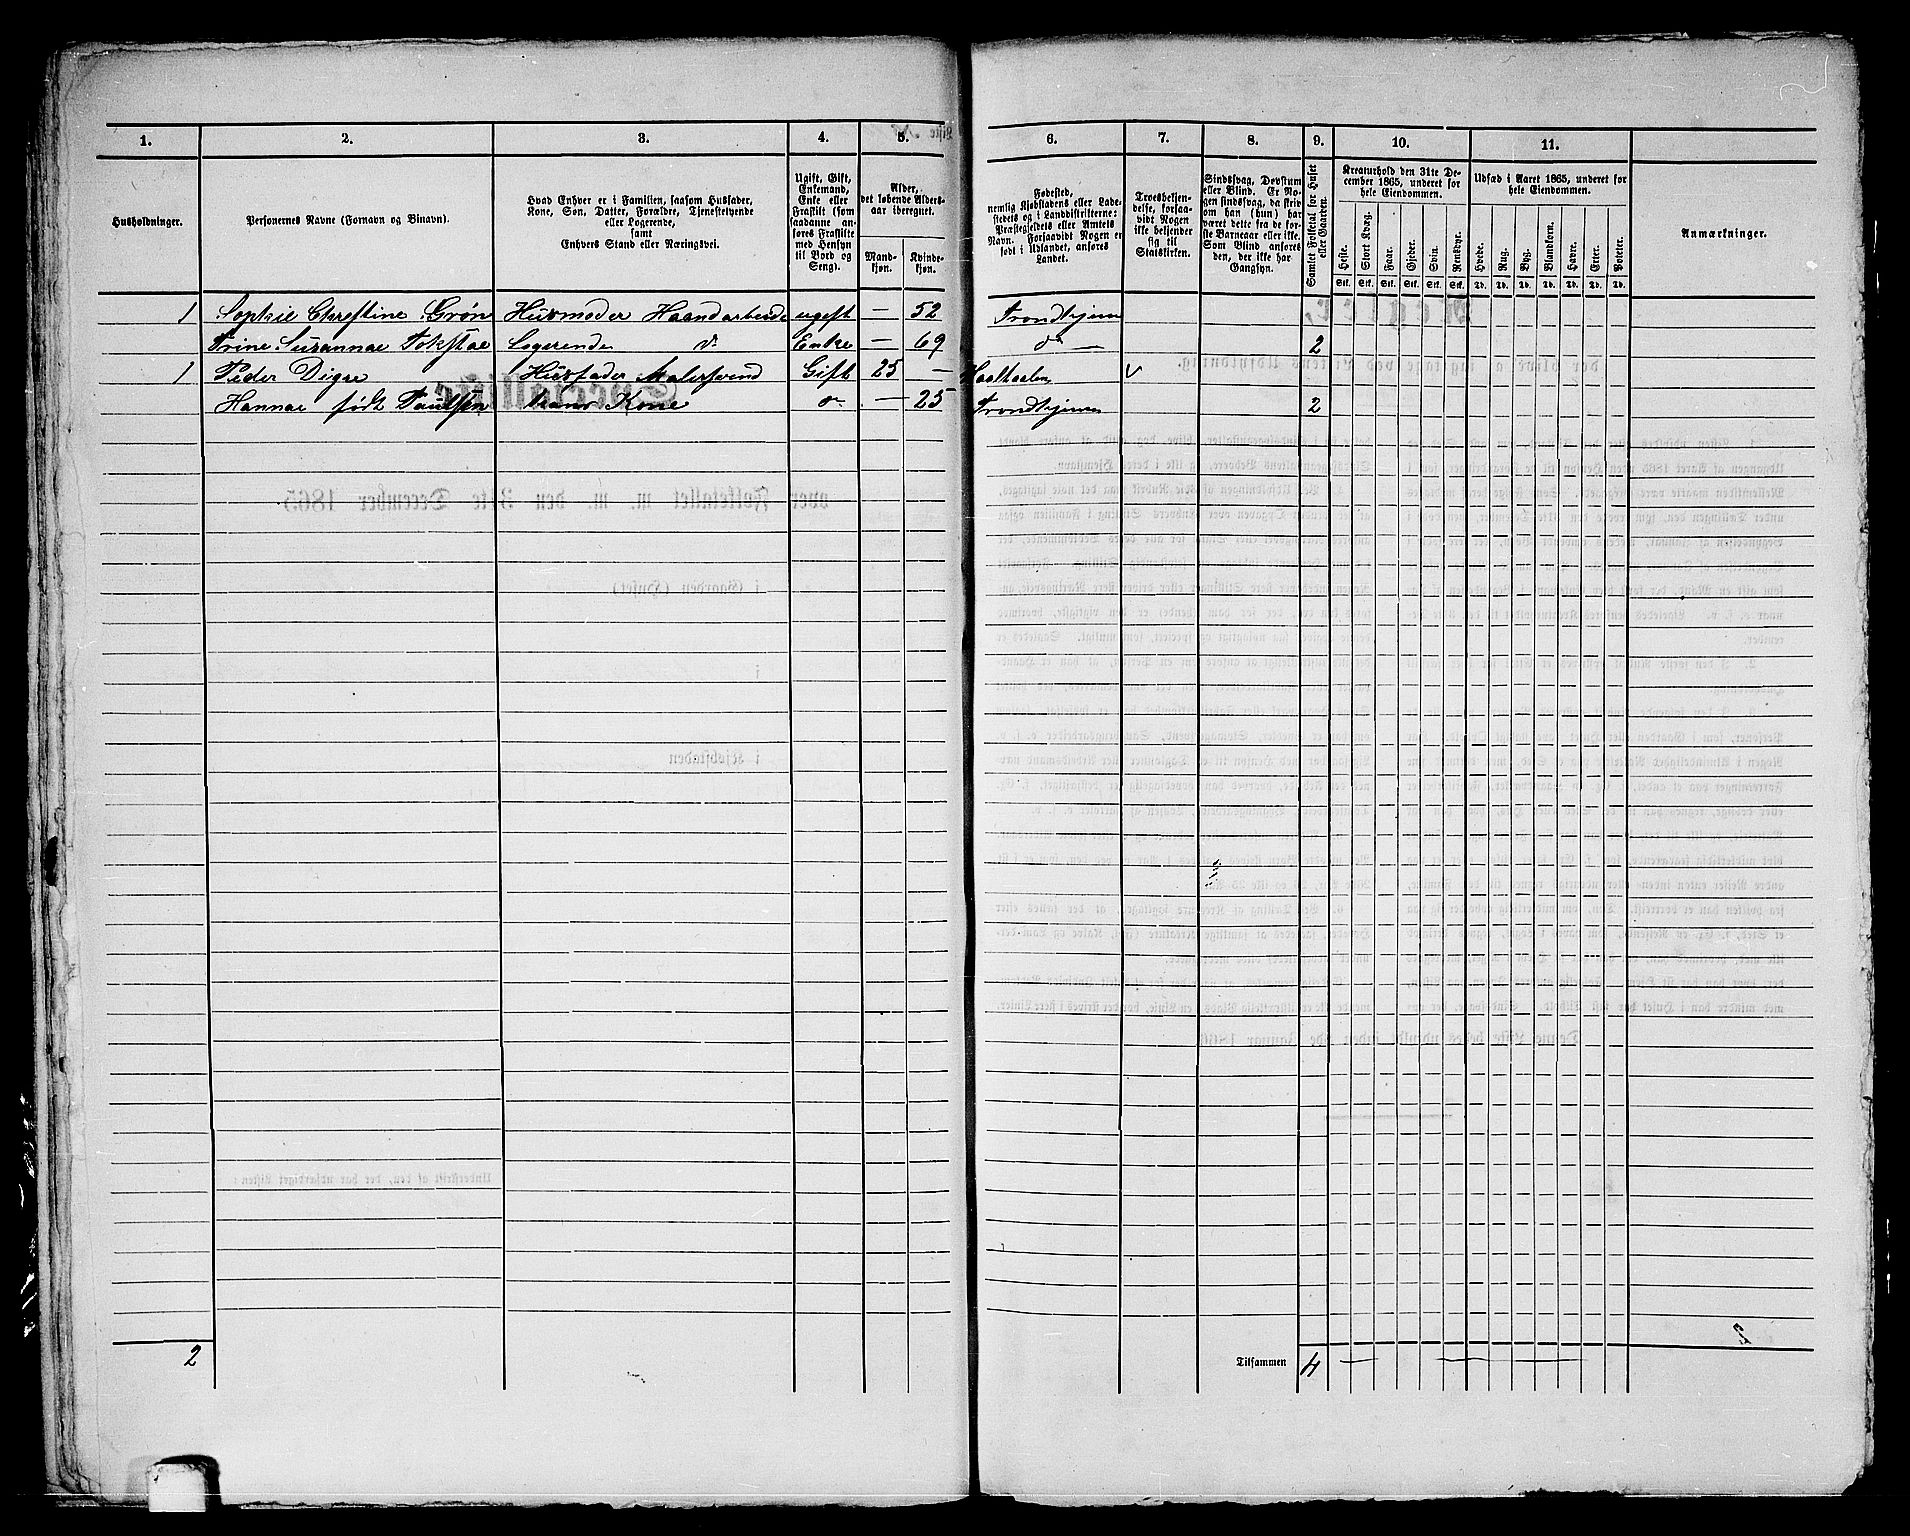 1. 2. 3. 4. 5. 6. 7. 8. 9. 10. 11.
Husholdninger.
Personernes Navne (Fornavn og Binavn).
Hvad Enhver er i Familien, saasom Husfader,
Kone, Søn, Datter, Forældre, Tjenestetyende
eller Logerende,
samt
Enhvers Stand eller Næringsvei.
Ugift, Gift,
Enkemand,
Enke eller
Fraskilt (som
saadanne an-
føres Fraskilte
med Hensyn
til Bord og
Seng).
Alder,
det løbende Alders-
aar iberegnet.
Mand-
kjøn.
Kvinde-
kjøn.
Fødested,
nemlig Kjøbstadens eller Lade-
stedets og i Landdistrikterne:
Præstegjeldets eller Amtets
Navn. Forsaavidt Nogen er
født i Udlandet, anføres
Landet.
Troesbekjen-
delse, forsaa-
vidt Nogen
ikke bekjender
sig til
Statskirken.
Sindssvag, Døvstum
eller Blind. Er No-
gen sindssvag, da skriv
om han (hun) har
været dette fra de før-
ste Barneaar eller ikke.
Som Blind anføres
den, der ikke har
Gangsyn.
Samlet Folketal for Huset
eller Gaarden.
Kreaturhold den 31te De-
cember 1865, underet for
hele Eiendommen.
Heste. Stort Kvæg. Faar. Gjeder. Svin. Rensdyr.
Stk. Stk. Stk. Stk. Stk. Stk.
Udsæd i Aaret 1865, underet for
hele Eiendommen.
Hvede. Rug. Byg. Blandkorn. Havre. Erter. Poteter.
Td. Td. Td. Td. Td. Td. Td.
Anmærkninger.
1 Sophie Chrestine Grøn Husmoder Haandarbeide ugift — 52 Trondhjem
Trine Susannae Tokstae Logerende do Enke — 69 do — 2
1 Peder Digre Husfader Malersvend Gift 25 — Haaltaalen v
Hannae født Paulsen hans Kone do — 25 Trondhjem 2
2 Tilsammen 4